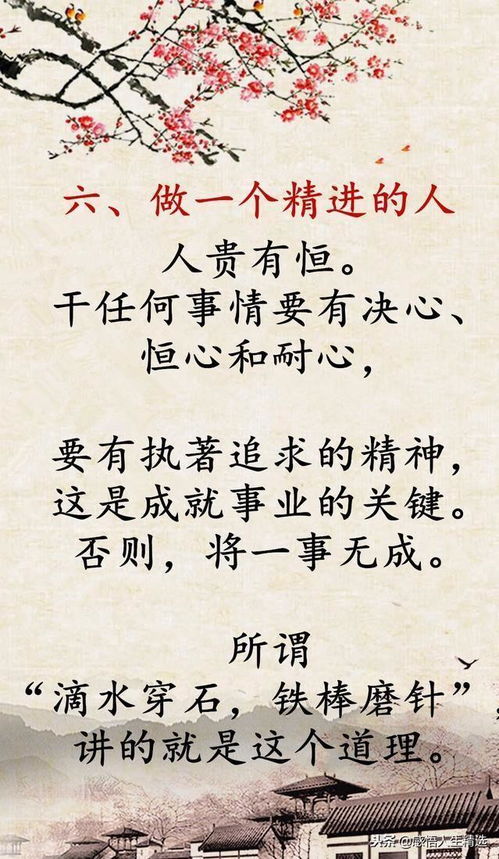 六、做一个精进的人
人贵有恒。
干任何事情要有决心、
恒心和耐心，
要有执著追求的精神，
这是成就事业的关键。
否则，将一事无成。
所谓
“滴水穿石，铁棒磨针”，
讲的就是这个道理。
头条 @感悟人生精选